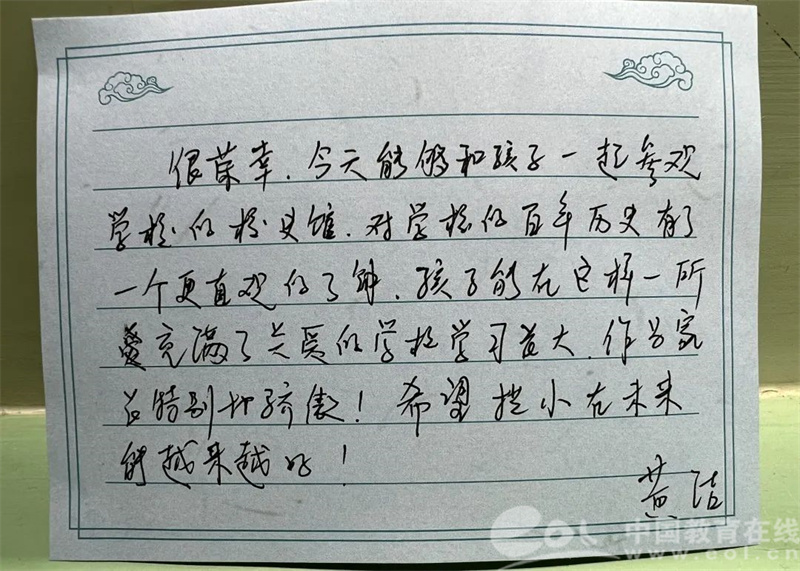 很荣幸，今天能够和孩子一起参观
学校的校史馆，对学校的百年历史有了
一个更直观的了解，孩子能在这样一所
充满了关爱的学校学习长大，作为家
长特别地骄傲！希望拱小在未来
能越来越好！
黄洁
eol 中国教育在线
www.eol.cn